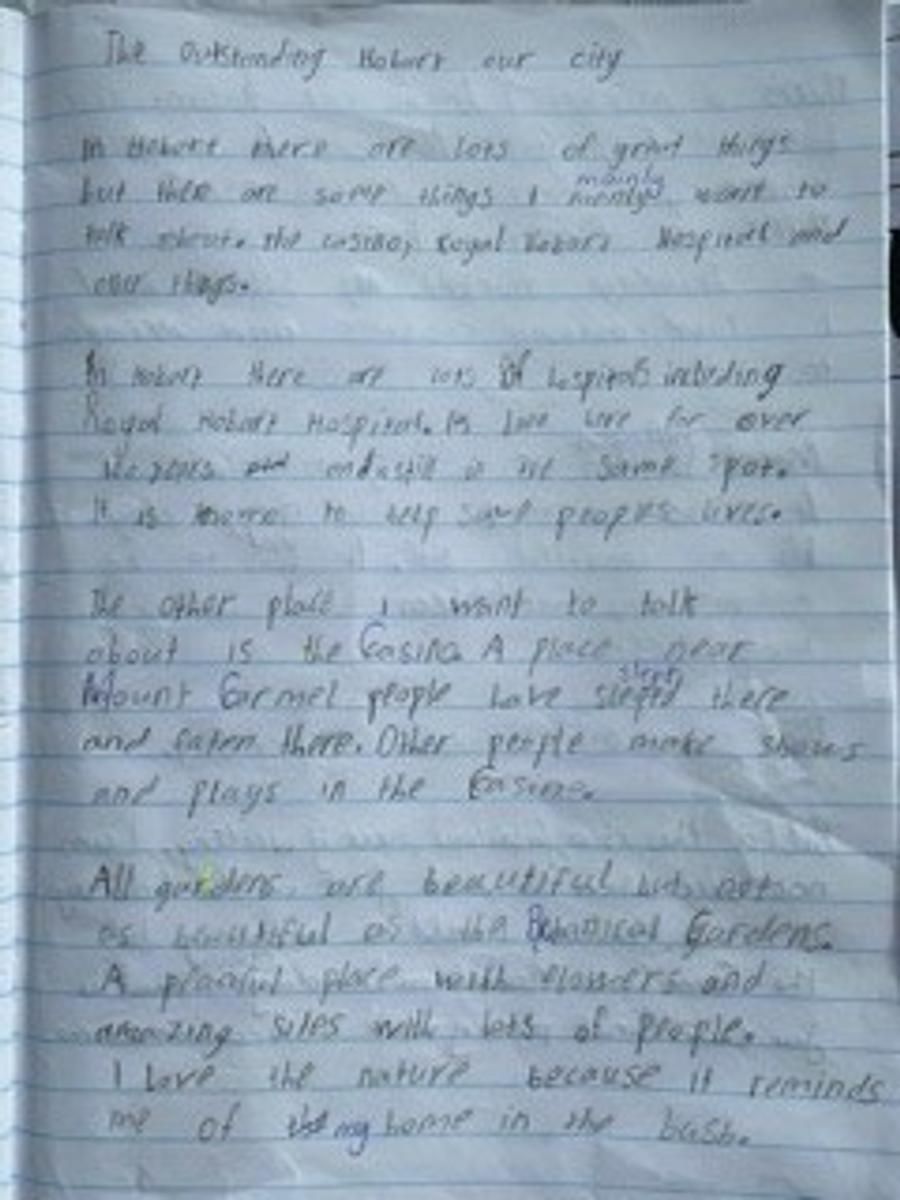 The Outstanding Hobart our city
In Hobart there are lots of great things
but there are some things I mainly want to
talk about. the casino, royal Hobart Hospital and
our things.
In Hobart there are lots of hospitals including
Royal Hobart Hospital. Is have here for over
years and still in the same spot.
It is to help save peoples lives.
The other place i want to talk
about is the Casino. A place near
Mount Carmel people have slept there
and eaten there. Other people make shows
and plays in the Casino.
All gardens are beautiful but not
as beautiful as the Botanical Gardens.
A peaceful place with flowers and
amazing sites with lots of people.
I love the nature because it reminds
me of my home in the bush.